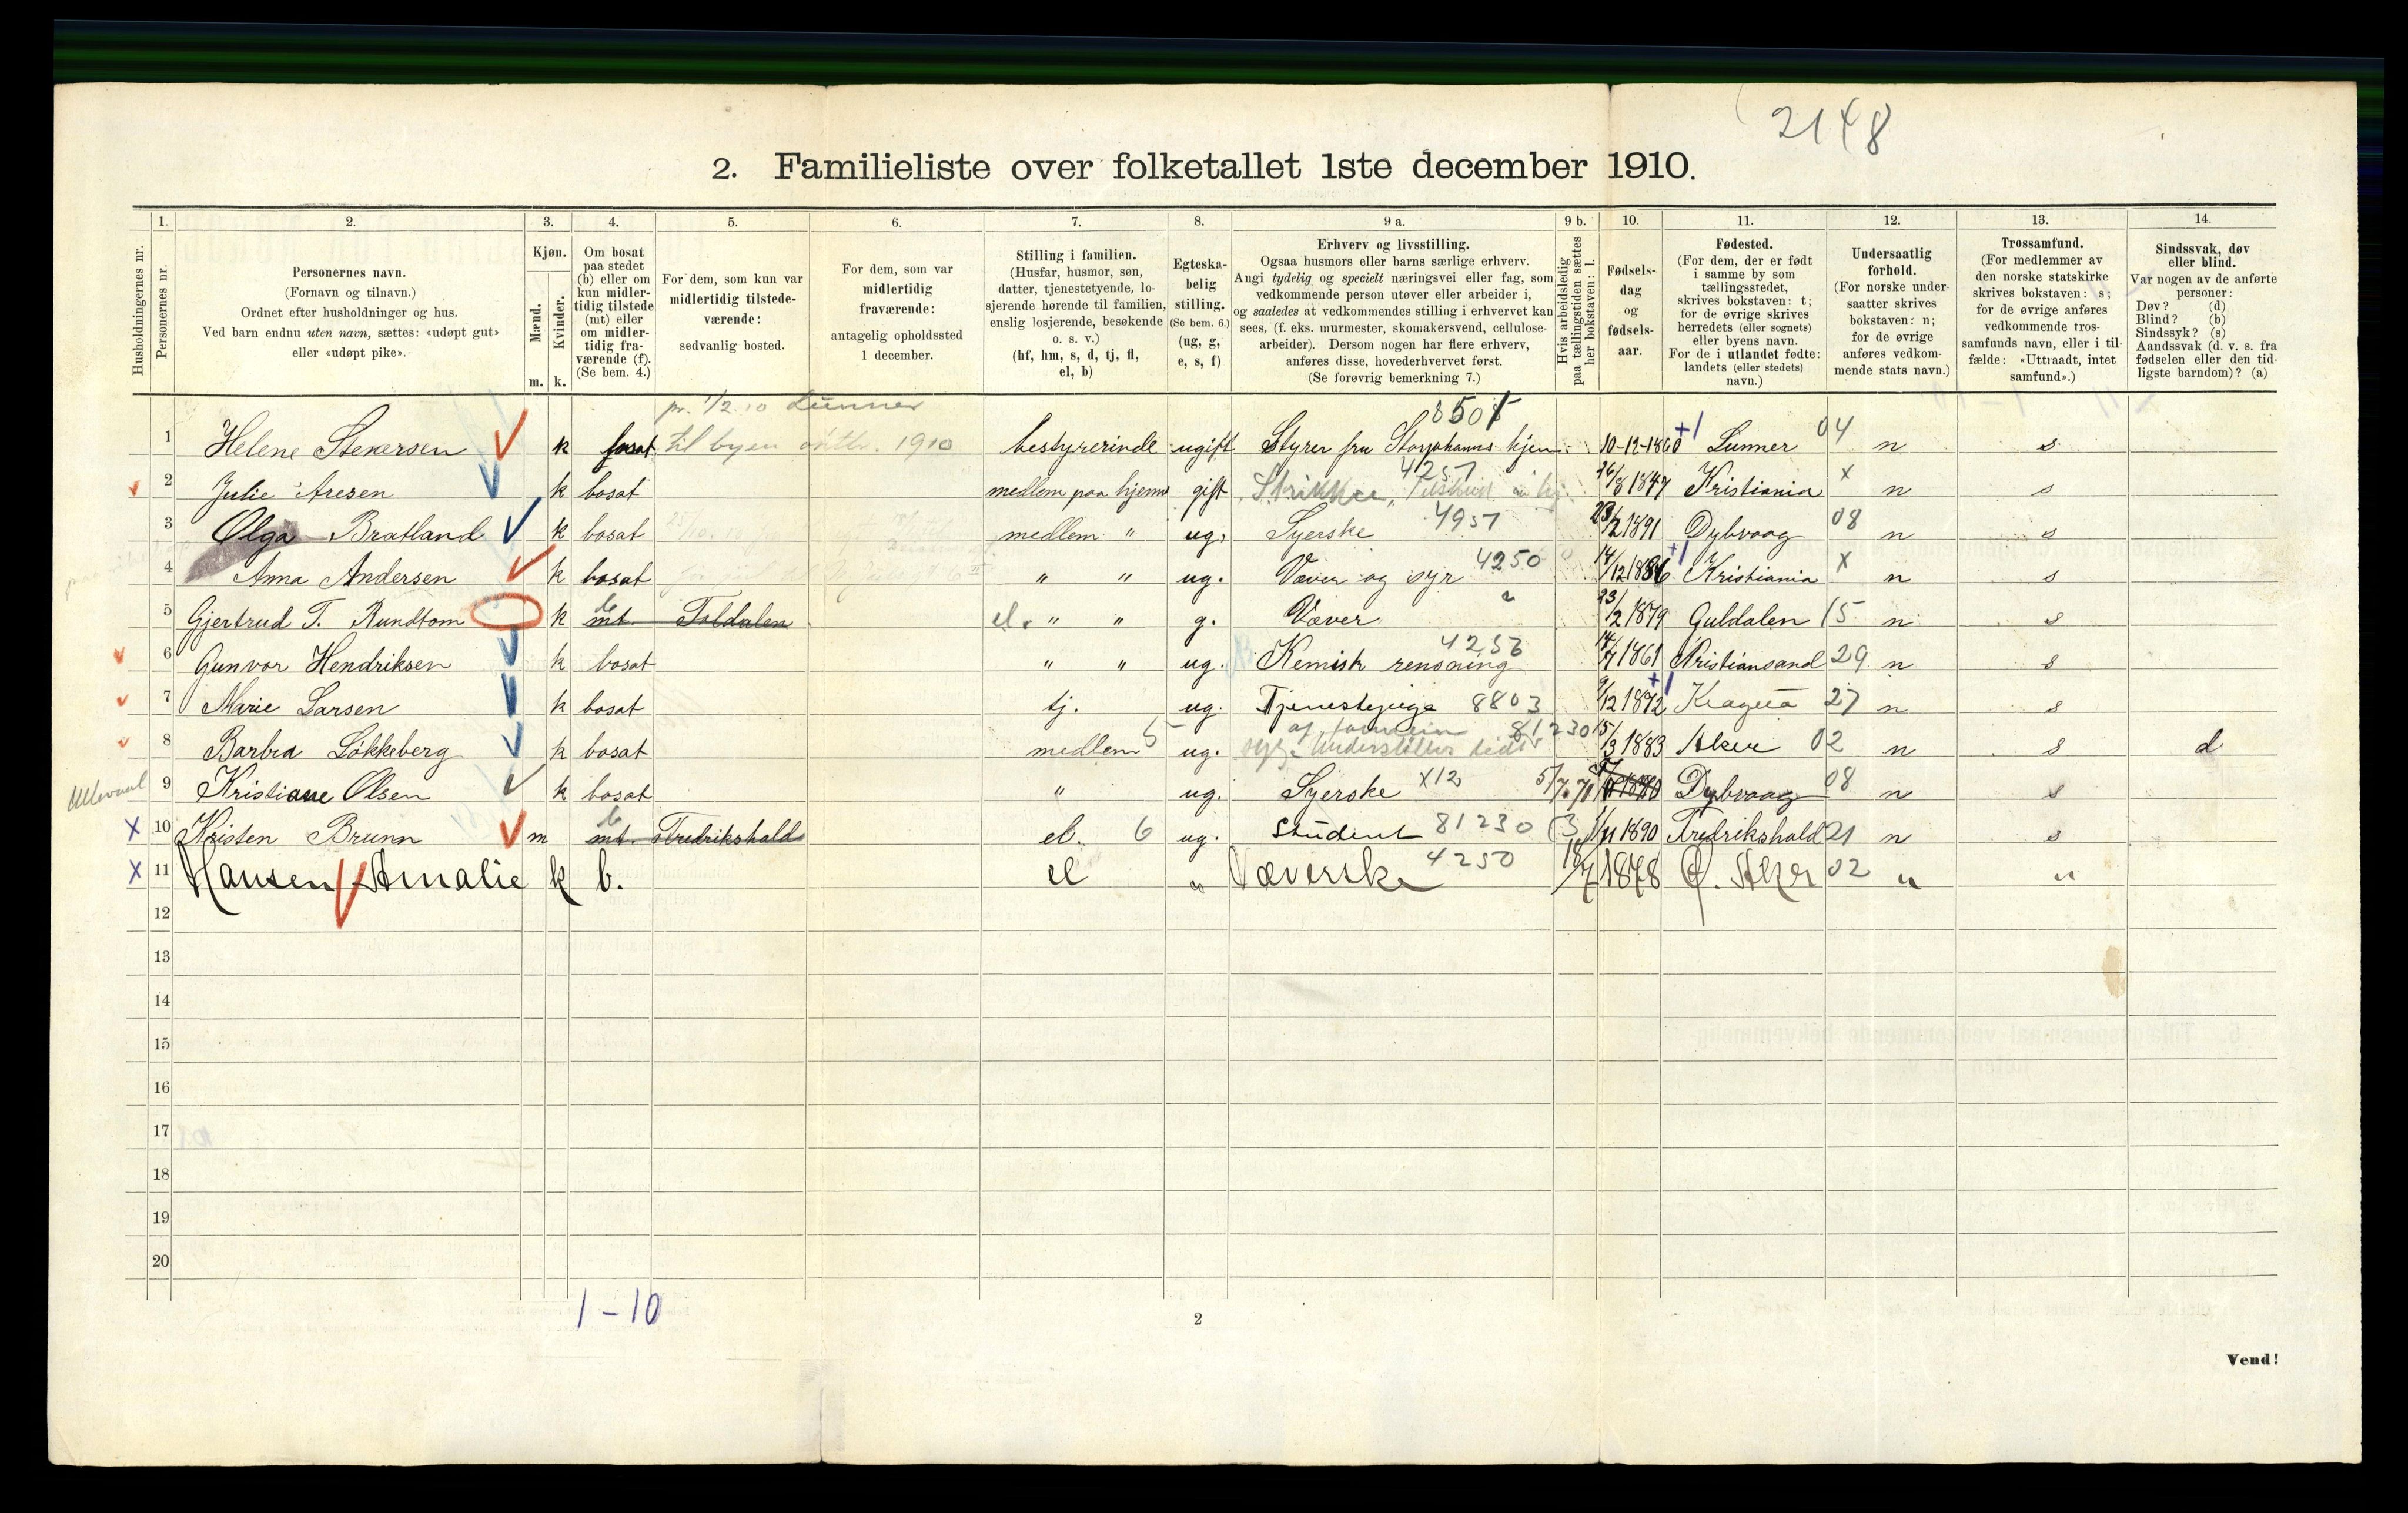 2148
2. Familieliste over folketallet 1ste december 1910.
1. 2. 3. 4. 5. 6. 7. 8. 9 a. 9 b. 10. 11. 12. 13. 14.
Husholdningernes nr.
Personernes nr.
Personernes navn.
(Fornavn og tilnavn.)
Ordnet efter husholdninger og hus.
Ved barn endnu uten navn, sættes: «udøpt gut»
eller «udøpt pike».
Kjøn.
Mænd.
Kvinder.
m. k.
Om bosat
paa stedet
(b) eller om
kun midler-
tidig tilstede
(mt) eller
om midler-
tidig fra-
værende (f).
(Se bem. 4.)
For dem, som kun var
midlertidig tilstede-
værende:
sedvanlig bosted.
For dem, som var
midlertidig
fraværende:
antagelig opholdssted
1 december.
Stilling i familien.
(Husfar, husmor, søn,
datter, tjenestetyende, lo-
sjerende hørende til familien,
enslig losjerende, besøkende
o. s. v.)
(hf, hm, s, d, tj, fl,
el, b)
Egteska-
belig
stilling.
(Se bem. 6.)
(ug, g,
e, s, f)
Erhverv og livsstilling.
Ogsaa husmors eller barns særlige erhverv.
Angi tydelig og specielt næringsvei eller fag, som
vedkommende person utøver eller arbeider i,
og saaledes at vedkommendes stilling i erhvervet kan
sees, (f. eks. murmester, skomakersvend, cellulose-
arbeider). Dersom nogen har flere erhverv,
anføres disse, hovederhvervet først.
(Se forøvrig bemerkning 7.)
Hvis arbeidsledig
paa tællingstiden sættes
her bokstaven: l.
Fødsels-
dag
og
fødsels-
aar.
Fødested.
(For dem, der er født
i samme by som
tællingsstedet,
skrives bokstaven: t;
for de øvrige skrives
herredets (eller sognets)
eller byens navn.
For de i utlandet fødte:
landets (eller stedets)
navn.)
Undersaatlig
forhold.
(For norske under-
saatter skrives
bokstaven: n;
for de øvrige
anføres vedkom-
mende stats navn.)
Trossamfund.
(For medlemmer av
den norske statskirke
skrives bokstaven: s;
for de øvrige anføres
vedkommende tros-
samfunds navn, eller i til-
fælde: «Uttraadt, intet
samfund».)
Sindssvak, døv
eller blind.
Var nogen av de anførte
personer:
Døv? (d)
Blind? (b)
Sindssyk? (s)
Aandssvak (d. v. s. fra
fødselen eller den tid-
ligste barndom)? (a)
pr. 1/2 10 Lunner
1 Helene Stenersen k bosat til byen 1910 bestyrerinde ugift Styrer 10-12-1860 +1 Lunner 04 n s
2 Julie Aresen k bosat medlem paa hjemm gift Strikke 4257 26/8 1847 Kristiania x n s
3 Olga Bratland k bosat medlem " ug. Syerske 4951 23/2 1891 Dybvaag 08 n s
4 Anna Andersen k bosat " " ug. Væver og syr 4250 14/12 1886 +1 Kristiania x n s
5 Gjertrud T. Rundtom k mt b Toldalen el. " " g. Væver 23/2 1879 Guldalen 15 n s
6 Gunvor Hendriksen k bosat " " ug. Kemisk rensning 4256 14/7 1861 Kristiansand 29 n s
7 Marie Larsen k bosat tj. ug. Tjenestepige 8803 9/12 1872 +1 Kragerø 27 n s
8 Barbra Løkkeberg k bosat medlem 5 ug. syg. Understøttes 81230 15/3 1883 Aker 02 n s d
9 Kristiane Olsen k bosat " ug. Syerske x12 5/7.71 Dybvaag 08 n s
x 10 Kristen Brunn m mt. b Fredrikshald el. 6 ug. Student 81230 1/11 1890 Fredrikshald 21 n s
x 11 Hansen, Amalie k b. el " Væverske 4250 18/7 1878 Ø. Aker 02 " "
12
13
14
15
16
17
18
19
20
1-10
2
Vend!